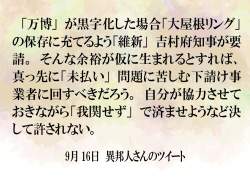 「万博」が黒字化した場合「大屋根リング」
の保存に充てるよう「維新」吉村府知事が要
請。そんな余裕が仮に生まれるとすれば、
真っ先に「未払い」問題に苦しむ下請け事
業者に回すべきだろう。自分が協力させて
おきながら「我関せず」で済ませようなど決
して許されない。
9月16日 異邦人さんのツイート